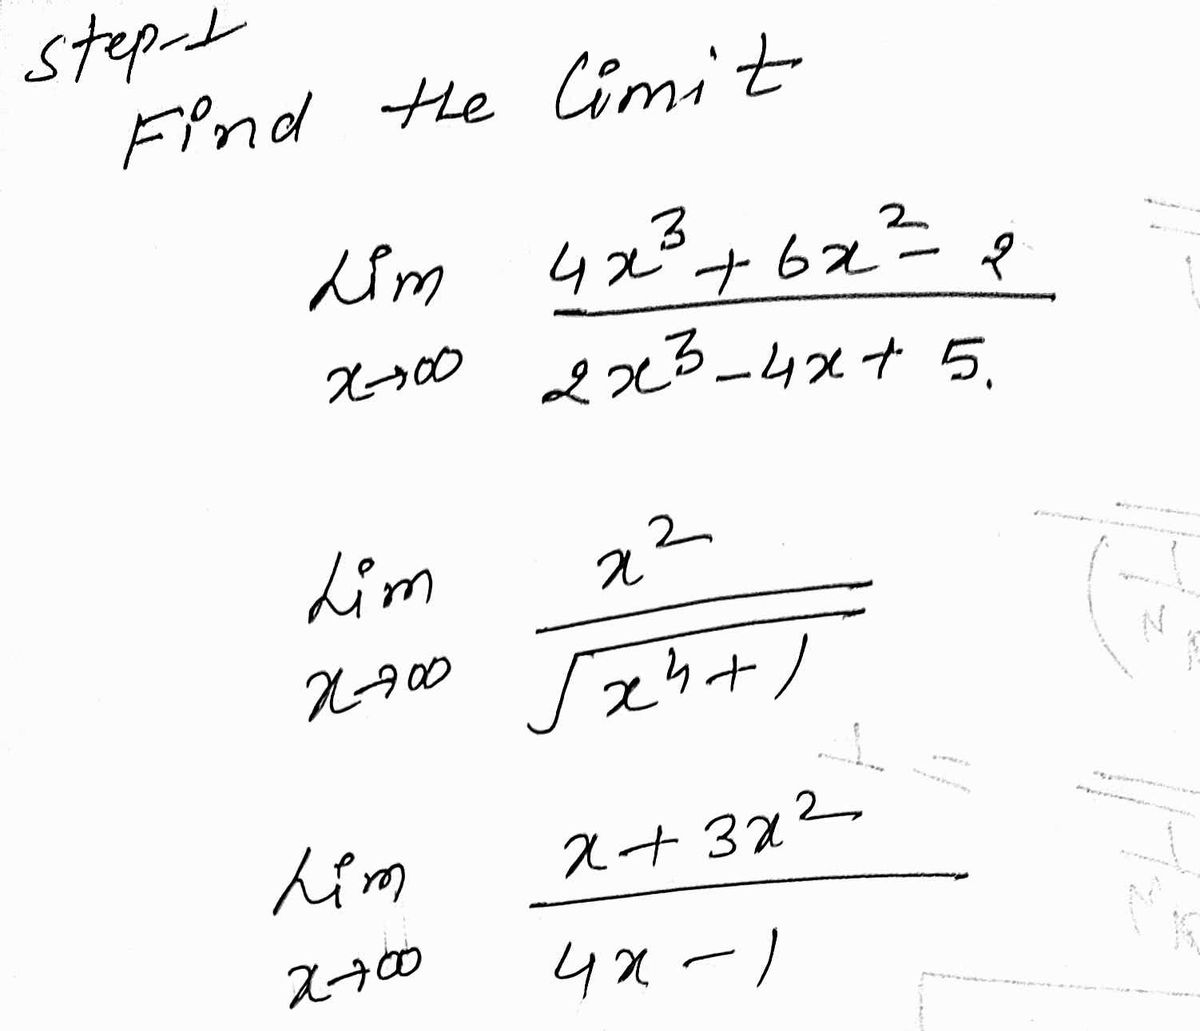 step-1
Find the limit
Lim 4x³ + 6x² - 2
x→∞ 2x³ - 4x + 5.
Lim x²
x→∞ √x⁴ + 1
Lim x + 3x²
x→∞ 4x - 1